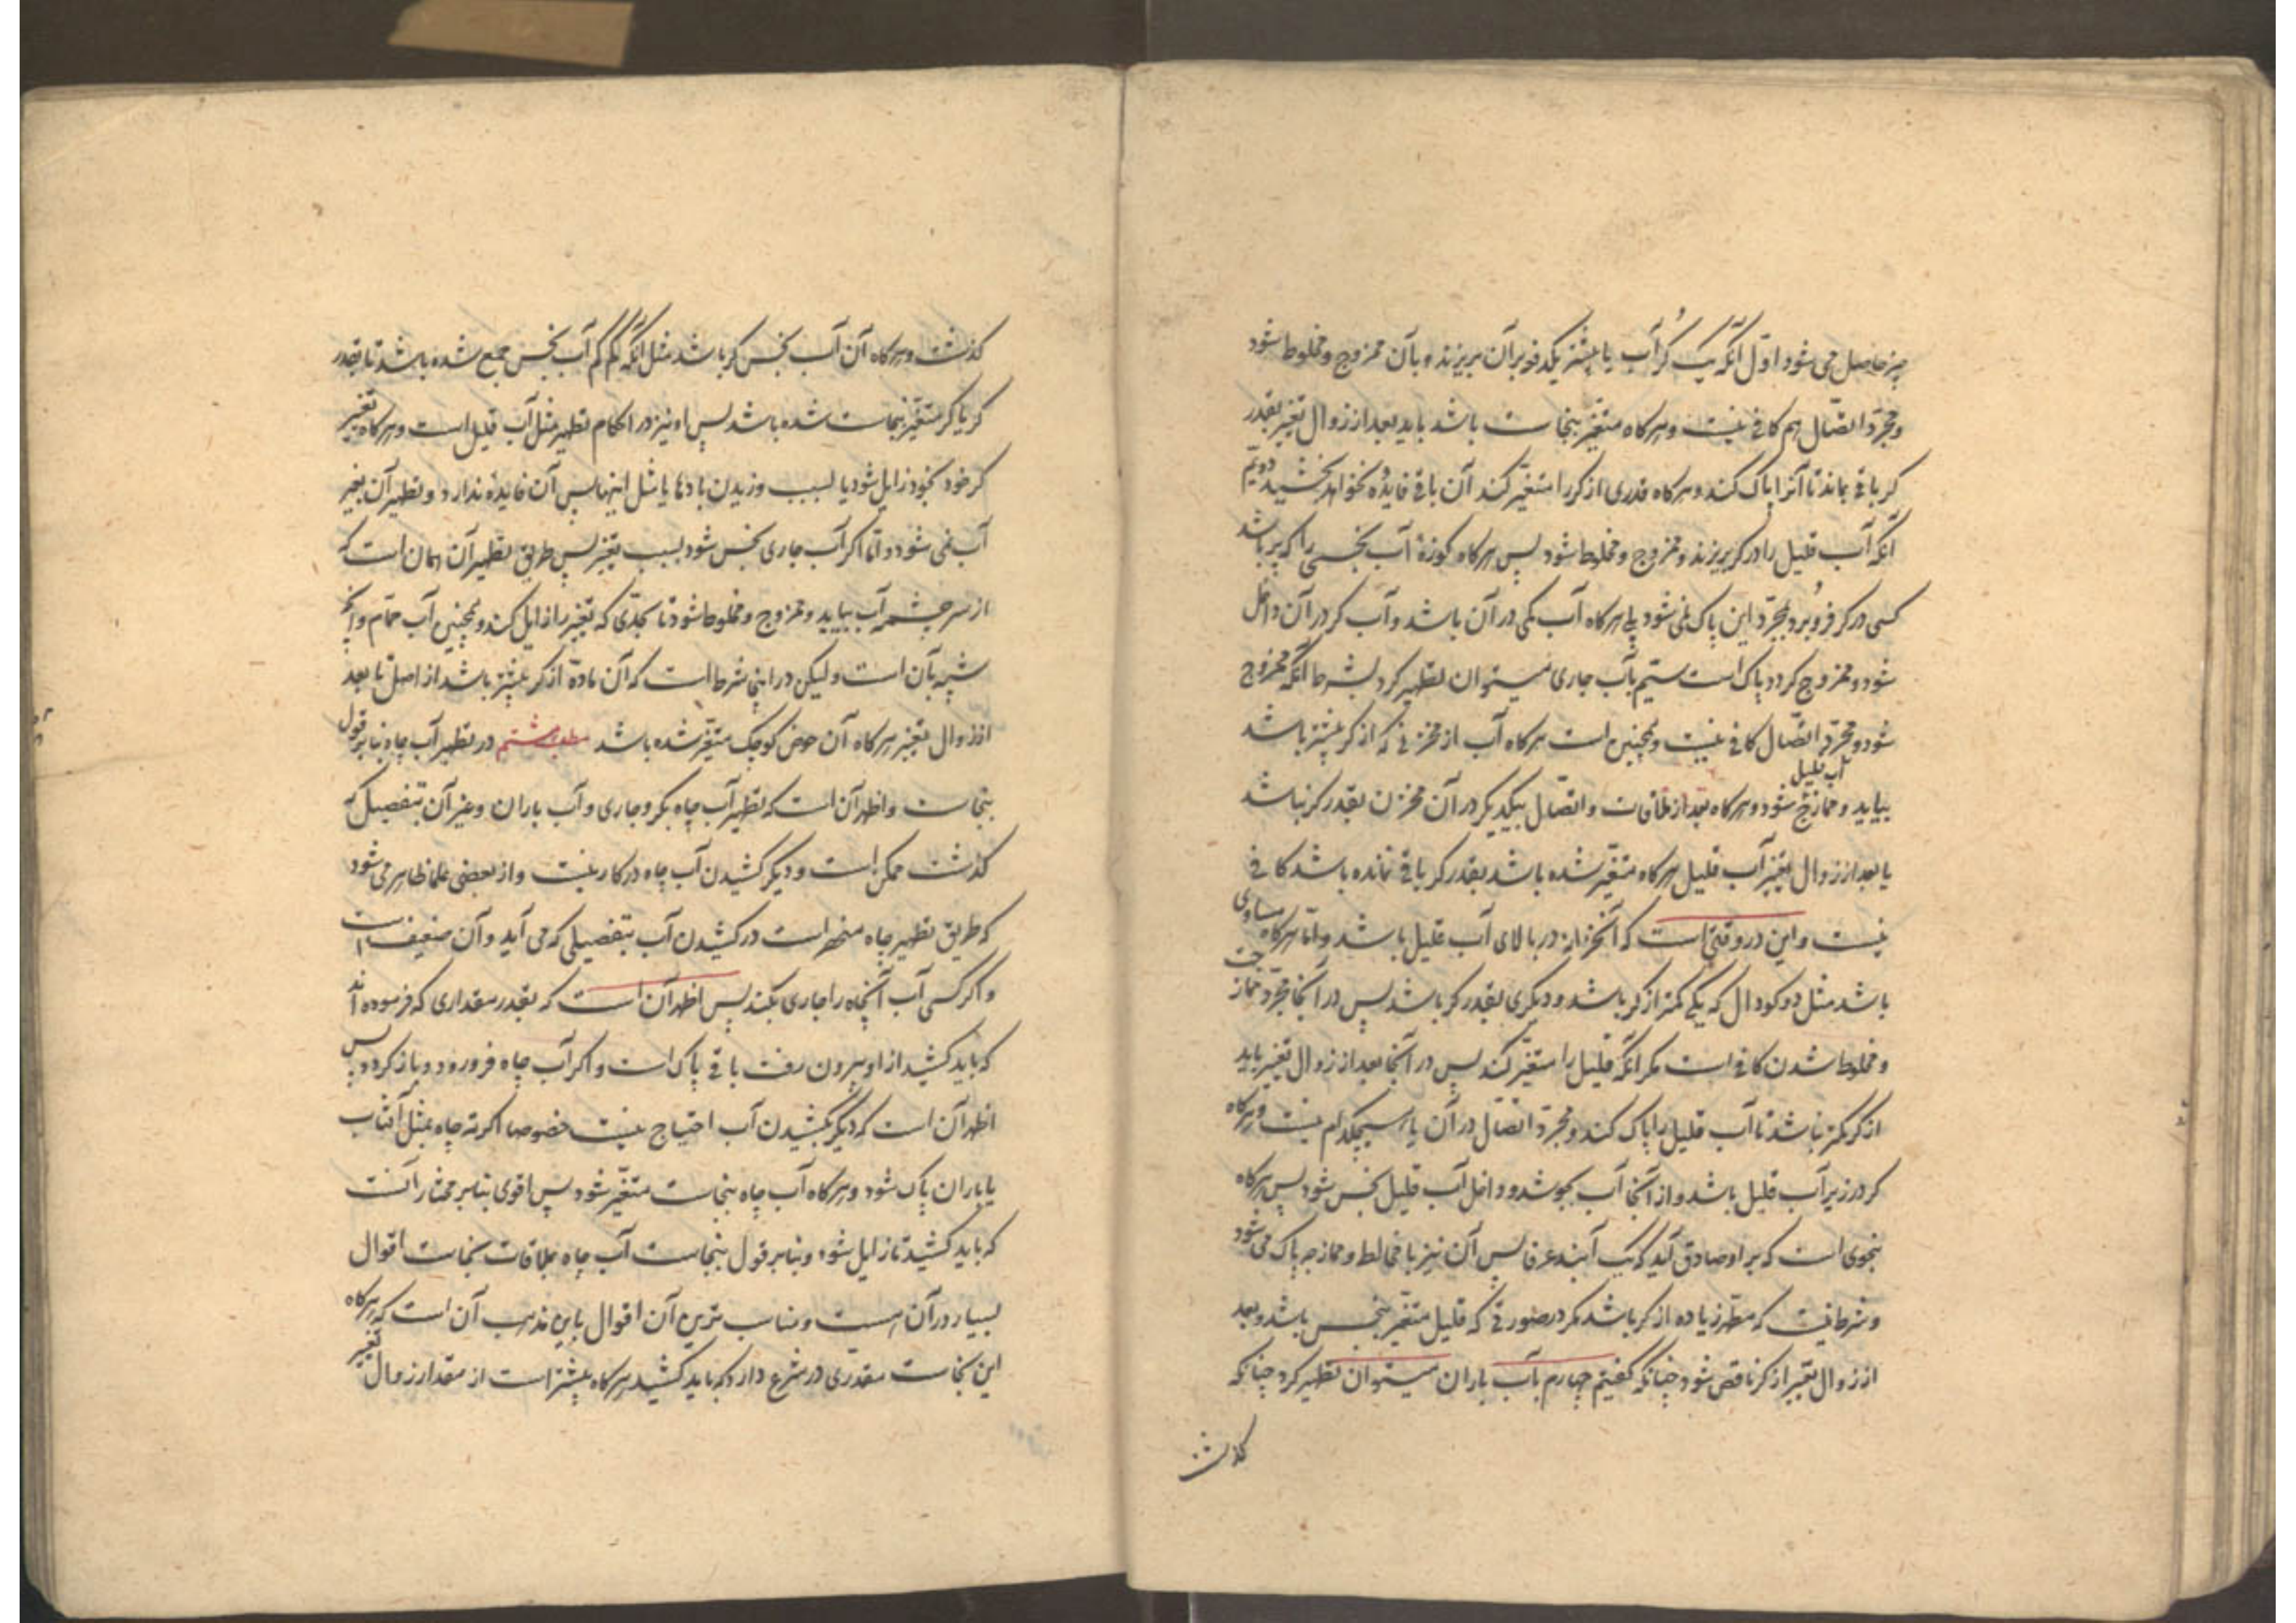 چیز حاصل می شود اوّل آنکه یک کُر آب یا بیشتر یکدفعه بر آن بریزند و بآن ممزوج و مخلوط شود
و مجرّد اتصّال هم کافی نیست و هرکاه متغیّر بنجاست باشد باید بعد از زوال تغیّر بقدر
کر باقی بماند تا آنرا پاک کند و هرکاه قدری از کر را متغیّر کند آن باقی فایدهٔ نخواهد بخشید دویّم
آنکه آب قلیل را در کر بریزند و ممزوج و مخلوط شود پس هرکاه کوزهٔ آب نجسی را که پر باشد
کسی در کر فرو بُرد بمجرّد این پاک نمی شود بلی هرکاه آب کمی در آن باشد و آب کر در آن داخل
شود و ممزوج کردد پاک است سیّم بآب جاری میتوان تطهیر کرد بشرط آنکه ممزوج
شود و مجرّد اتّصال کافی نیست و همچنین است هرکاه آب از مخزنی که از کر بیشتر باشد
بیاید و ممازج آب قلیل شود و هرکاه بعد از ملاقات و اتّصال بیکدیکر در آن مخزن بقدر کر نباشد
یا بعد از زوال تغیّر آب قلیل هرکاه متغیّر شده باشد بقدر کر باقی نمانده باشد کافی
نیست و این در وقتی است که آنخزانه در بالای آب قلیل باشد و امّا هرکاه مساوی
باشد مثل دو کودال که یکی کمتر از کر باشد و دیکری بقدر کر باشد پس در آنجا مجرّد ممازجت
و مخلوط شدن کافی است مکر آنکه قلیل را متغیّر کند پس در آنجا بعد از زوال تغیّر باید
از کر کمتر نباشد تا آب قلیل را پاک کند و مجرّد اتّصال در آن یا هیچکدام نیست و هرکاه
کر در زیر آب قلیل باشد و از آنجا آب بجوشد و داخل آب قلیل نجس شود پس هرکاه
بنحوی است که بر او صادق آید که یک آبند عرفا پس آن نیز با مخالطه و ممازجه پاک می شود
و شرط نیست که مطهّر زیاده از کر باشد مکر در صورتی که قلیل متغیّر بنجس باشد و بعد
از زوال تغیّر از کر ناقص شود چنانکه کفتیم چهارم بآب باران میتوان تطهیر کرد چنانکه
کذشت
کذشت و هرکاه آن آب نجس کر باشد مثل آنکه کم کم آب نجس جمع شده باشد تا بقدر
کر یا کر متغیّر بنجاست شده باشد پس او نیز در احکام تطهیر مثل آب قلیل است و هرکاه تغییر
کر خود بخود زایل شود یا بسبب وزیدن بادها یا مثل اینها پس آن فایده ندارد و تطهیر آن بغیر
آب نمی شود و امّا اکر آب جاری نجس شود بسبب تغیّر پس طریق تطهیر آن همان است که
از سر چشمه آب بیاید و ممزوج و مخلوط شود تا بحدّی که تغیّر را زایل کند و همچنین آب حمّام و آنچه
شبیه بآن است و لیکن در اینجا شرط است که آن مادّه از کر بیشتر باشد از اصل تا بعد
از زوال تغیّر هرکاه آن حوض کوچک متغیّر شده باشد مطلب هشتم در تطهیر آب چاه بنا بر قول
بنجاست و اظهر آن است که تطهیر آب چاه بکر و جاری و آب باران و غیر آن بتفصیلی که
کذشت ممکن است و دیکر کشیدن آب چاه در کار نیست و از بعضی علما ظاهر می شود
که طریق تطهیر چاه منحصر است در کشیدن آب بتفصیلی که می آید و آن ضعیف است
و اکر کسی آب آنچاه را جاری بکند پس اظهر آن است که بقدر مقداری که فرموده اند
که باید کشید از او بیرون رفت باقی پاک است و اکر آب چاه فرو رود و باز کردد پس
اظهر آن است که دیکر بکشیدن آب احتیاج نیست خصوصا اکر ته چاه بمثل آفتاب
یا باران پاک شود و هرکاه آب چاه بنجاست متغیّر شود پس اقوی بنا بر مختار آنست
که باید کشید تا زایل شود و بنا بر قول بنجاست آب چاه بملاقات نجاست اقوال
بسیار در آن هست و مناسب ترین آن اقوال باین مذهب آن است که هرکاه
این نجاست مقدّری در شرع دارد که باید کشید هرکاه بیشتر است از مقدار زوال تغییر